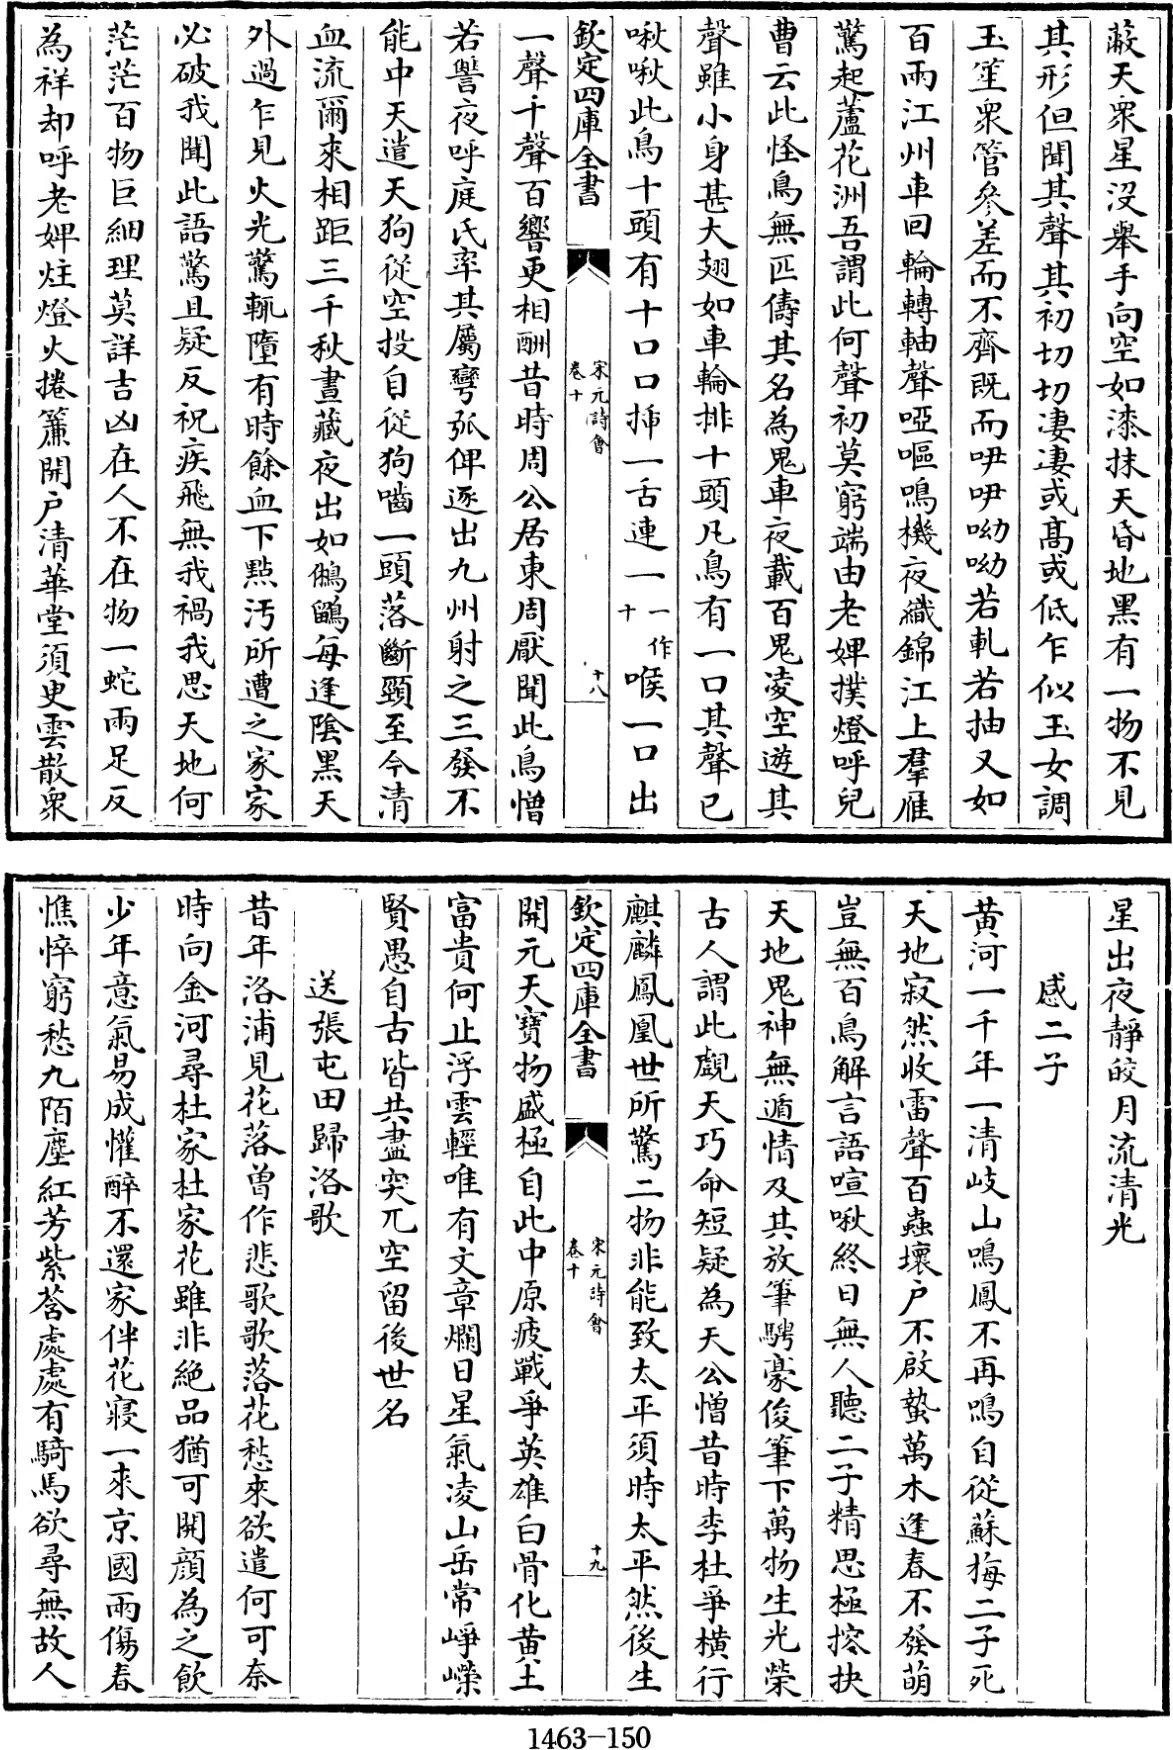 蔽天衆星没舉手向空如漆抹天昏地黑有一物不見
其形但聞其聲其初切切淒淒或髙或低乍似玉女調
玉笙衆管參差而不齊既而咿咿呦呦若軋若抽又如
百兩江州車回輪轉軸聲啞嘔鳴機夜織錦江上羣雁
驚起蘆花洲吾謂此何聲初莫窮端由老婢撲燈呼兒
曹云此怪鳥無匹儔其名為鬼車夜載百鬼凌空遊其
聲雖小身甚大翅如車輪排十頭凡鳥有一口其聲已
啾啾此鳥十頭有十口口揷一舌連一一作十喉一口出
欽定四庫全書
宋元詩會
卷十
十八
一聲千聲百響更相酬昔時周公居東周厭聞此鳥憎
若讐夜呼庭氏率其屬彎弧俾逐出九州射之三發不
能中天遣天狗從空投自從狗嚙一頭落斷頸至今清
血流爾來相距三千秋晝藏夜出如鵂鶹每逢陰黑天
外過乍見火光驚輒墮有時餘血下㸃汚所遭之家家
必破我聞此語驚且疑反祝疾飛無我禍我思天地何
茫茫百物巨細理莫詳吉凶在人不在物一蛇兩足反
為祥却呼老婢炷燈火捲簾開户清華堂須史雲散衆
星出夜靜皎月流清光
感二子
黄河一千年一清岐山鳴鳳不再鳴自從蘇梅二子死
天地寂然收雷聲百蟲壞户不啟蟄萬木逢春不發萌
豈無百鳥解言語喧啾終日無人聽二子精思極搜抉
天地鬼神無遁情及其放筆騁豪俊筆下萬物生光榮
古人謂此覷天巧命短疑為天公憎昔時李杜爭横行
麒麟鳳凰世所驚二物非能致太平須時太平然後生
欽定四庫全書
宋元詩會
卷十
十九
開元天寶物盛極自此中原疲戰爭英雄白骨化黄土
富貴何止浮雲輕唯有文章爛日星氣凌山岳常崢嶸
賢愚自古皆共盡突兀空留後世名
送張屯田歸洛歌
昔年洛浦見花落曾作悲歌歌落花愁來欲遣何可奈
時向金河尋杜家杜家花雖非絶品猶可開顔為之飲
少年意氣易成懽醉不還家伴花寢一來京國兩傷春
憔悴窮愁九陌塵紅芳紫萼處處有騎馬欲尋無故人
1463-150